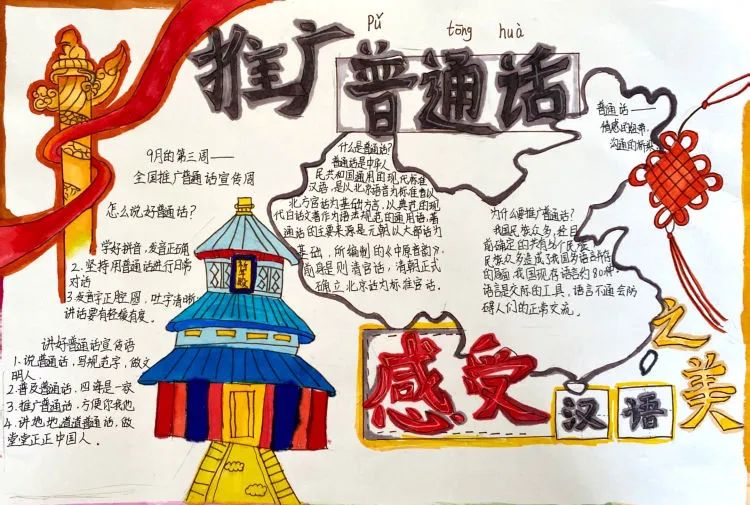 Pǔ tōng huà
推广普通话
9月的第三周——
全国推广普通话宣传周
怎么说好普通话?
学好拼音,发音正确
2.坚持用普通话进行日常
对话
3.发音字正腔圆,吐字清晰
讲话要有轻缓有度。
讲好普通话宣传语
1.说普通话,写规范字,做文
明人。
2.普及普通话,四海是一家
3.推广普通话,方便你我他
4.讲地地道道普通话,做
堂堂正正中国人。
什么是普通话?
普通话是中华人
民共和国通用的现代标准
汉语,是以北京语音为标准音以
北方官话为基础方言,以典范的现
代白话文著作为语法规范的通用语。普
通话的主要来源是元朝以大都话为
基础,所编制的《中原音韵》。
则清官话,清朝正式
确立北京话为标准官话。
普通话——
情感的纽带,
沟通的桥梁
为什么要推广普通话?
我国民族众多,经目
前确定的共有56个民族
民族众多造成了我国多语言所存
的局面,我国现存语言约80种,
语言是交际的工具,语言不通会防
碍人们的正常交流。
感受
汉语
之美